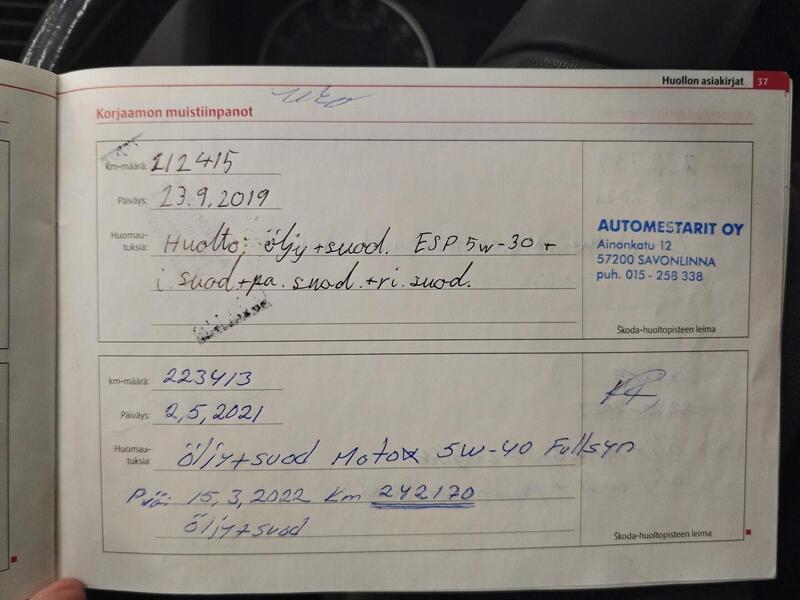 Huollon asiakirjat 37
Korjaamon muistiinpanot
km-määrä: 212415
Päiväys: 23.9.2019
Huomau-
tuksia: Huolto: öljy+suod. ESP 5w-30 +
i.suod+pa.suod.+ri.suod.
AUTOMESTARIT OY
Ainonkatu 12
57200 SAVONLINNA
puh. 015 - 258 338
Škoda-huoltopisteen leima
km-määrä: 223413
Päiväys: 2,5,2021
Huomau-
tuksia: öljy+suod Motox 5W-40 Fullsyn
Pvä: 15,3,2022 Km 242170
öljy+suod
Škoda-huoltopisteen leima